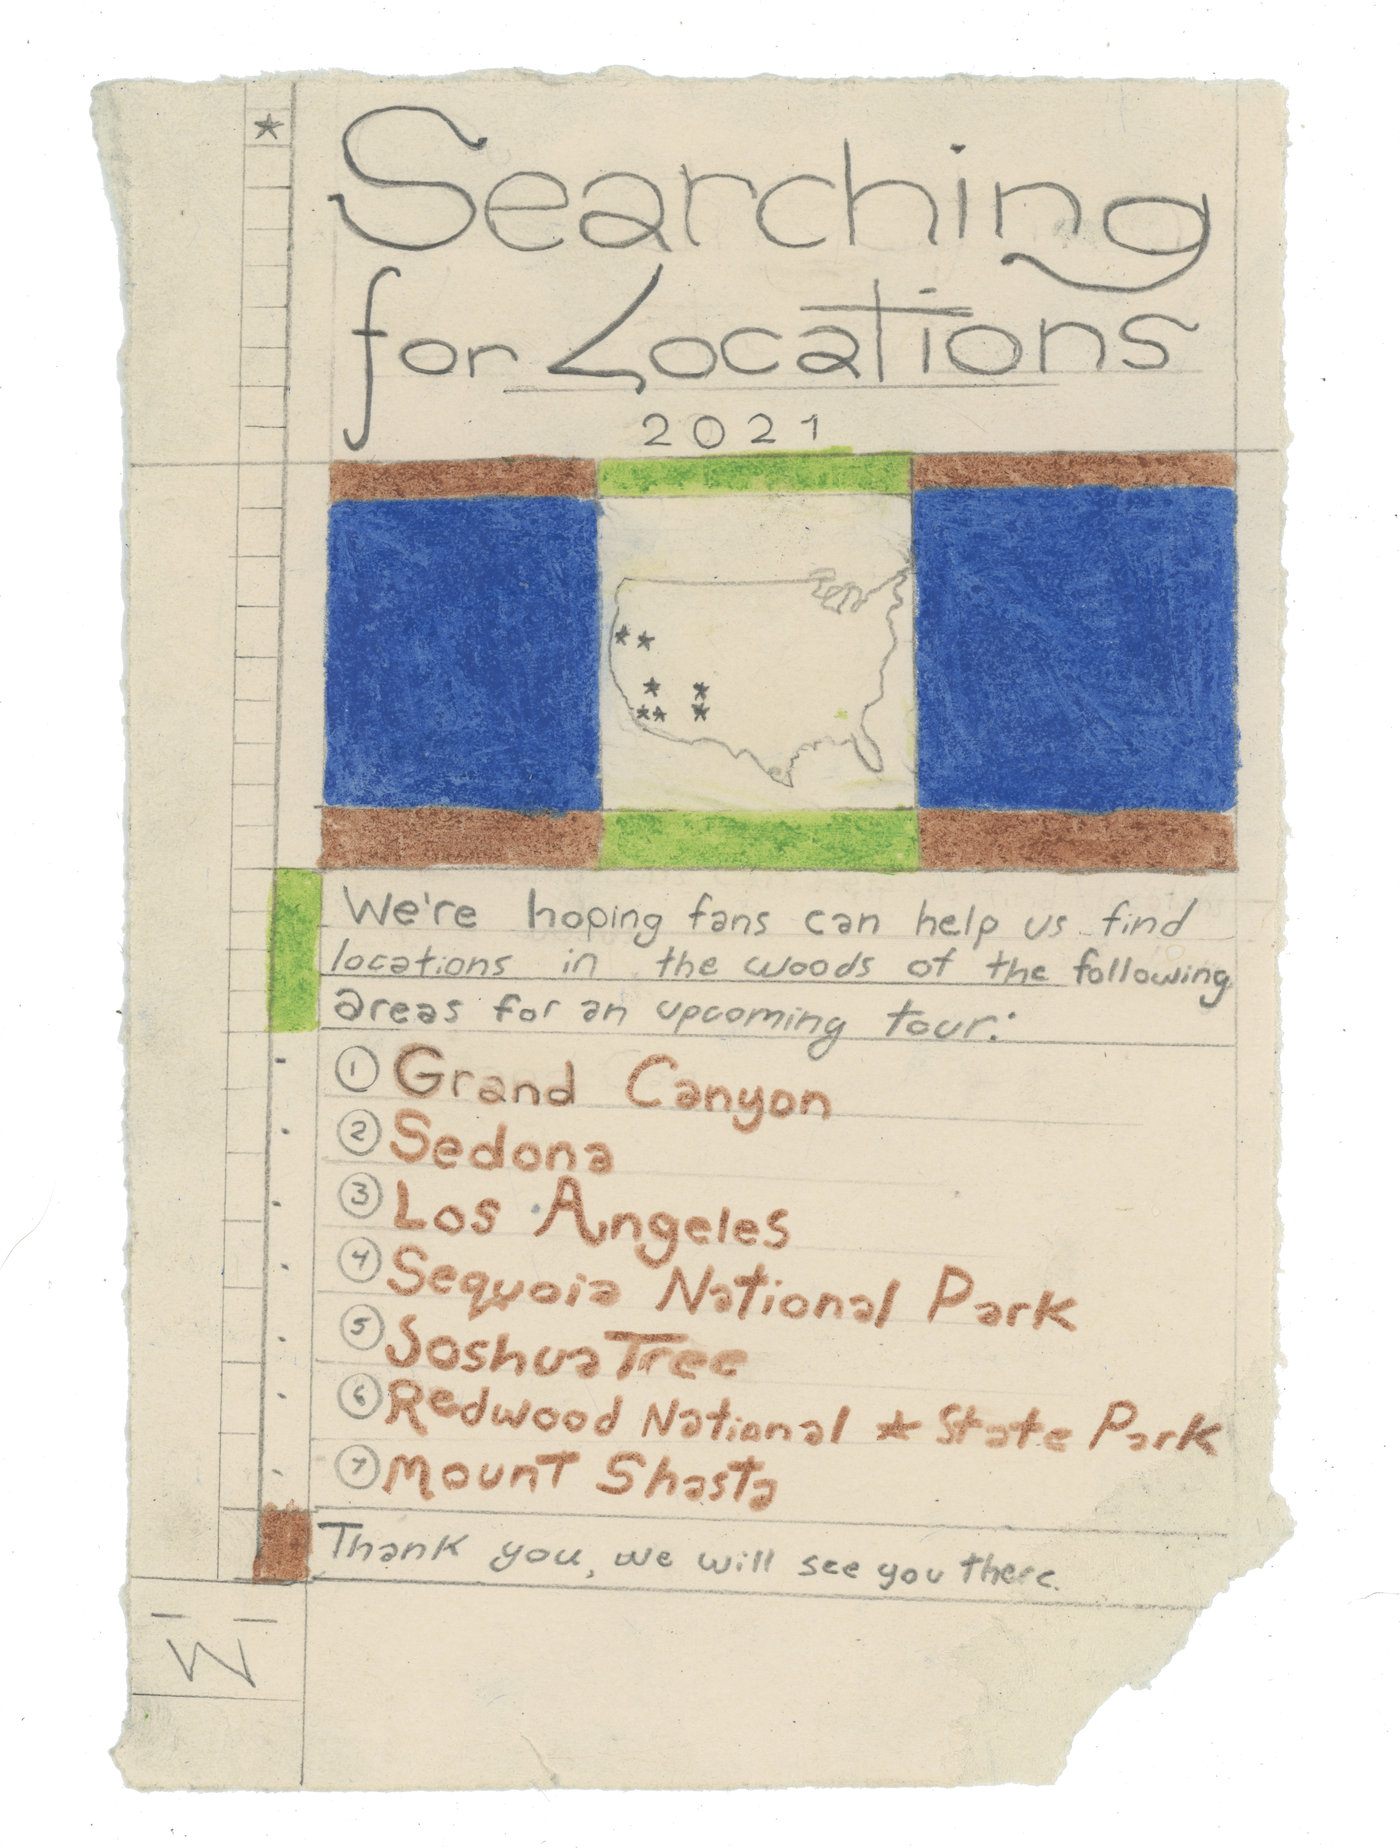 Searching
for Locations
2021
We're hoping fans can help us find
locations in the woods of the following
areas for an upcoming tour:
1 Grand Canyon
2 Sedona
3 Los Angeles
4 Sequoia National Park
5 Joshua Tree
6 Redwood National ★ State Park
7 Mount Shasta
Thank you, we will see you there.
W